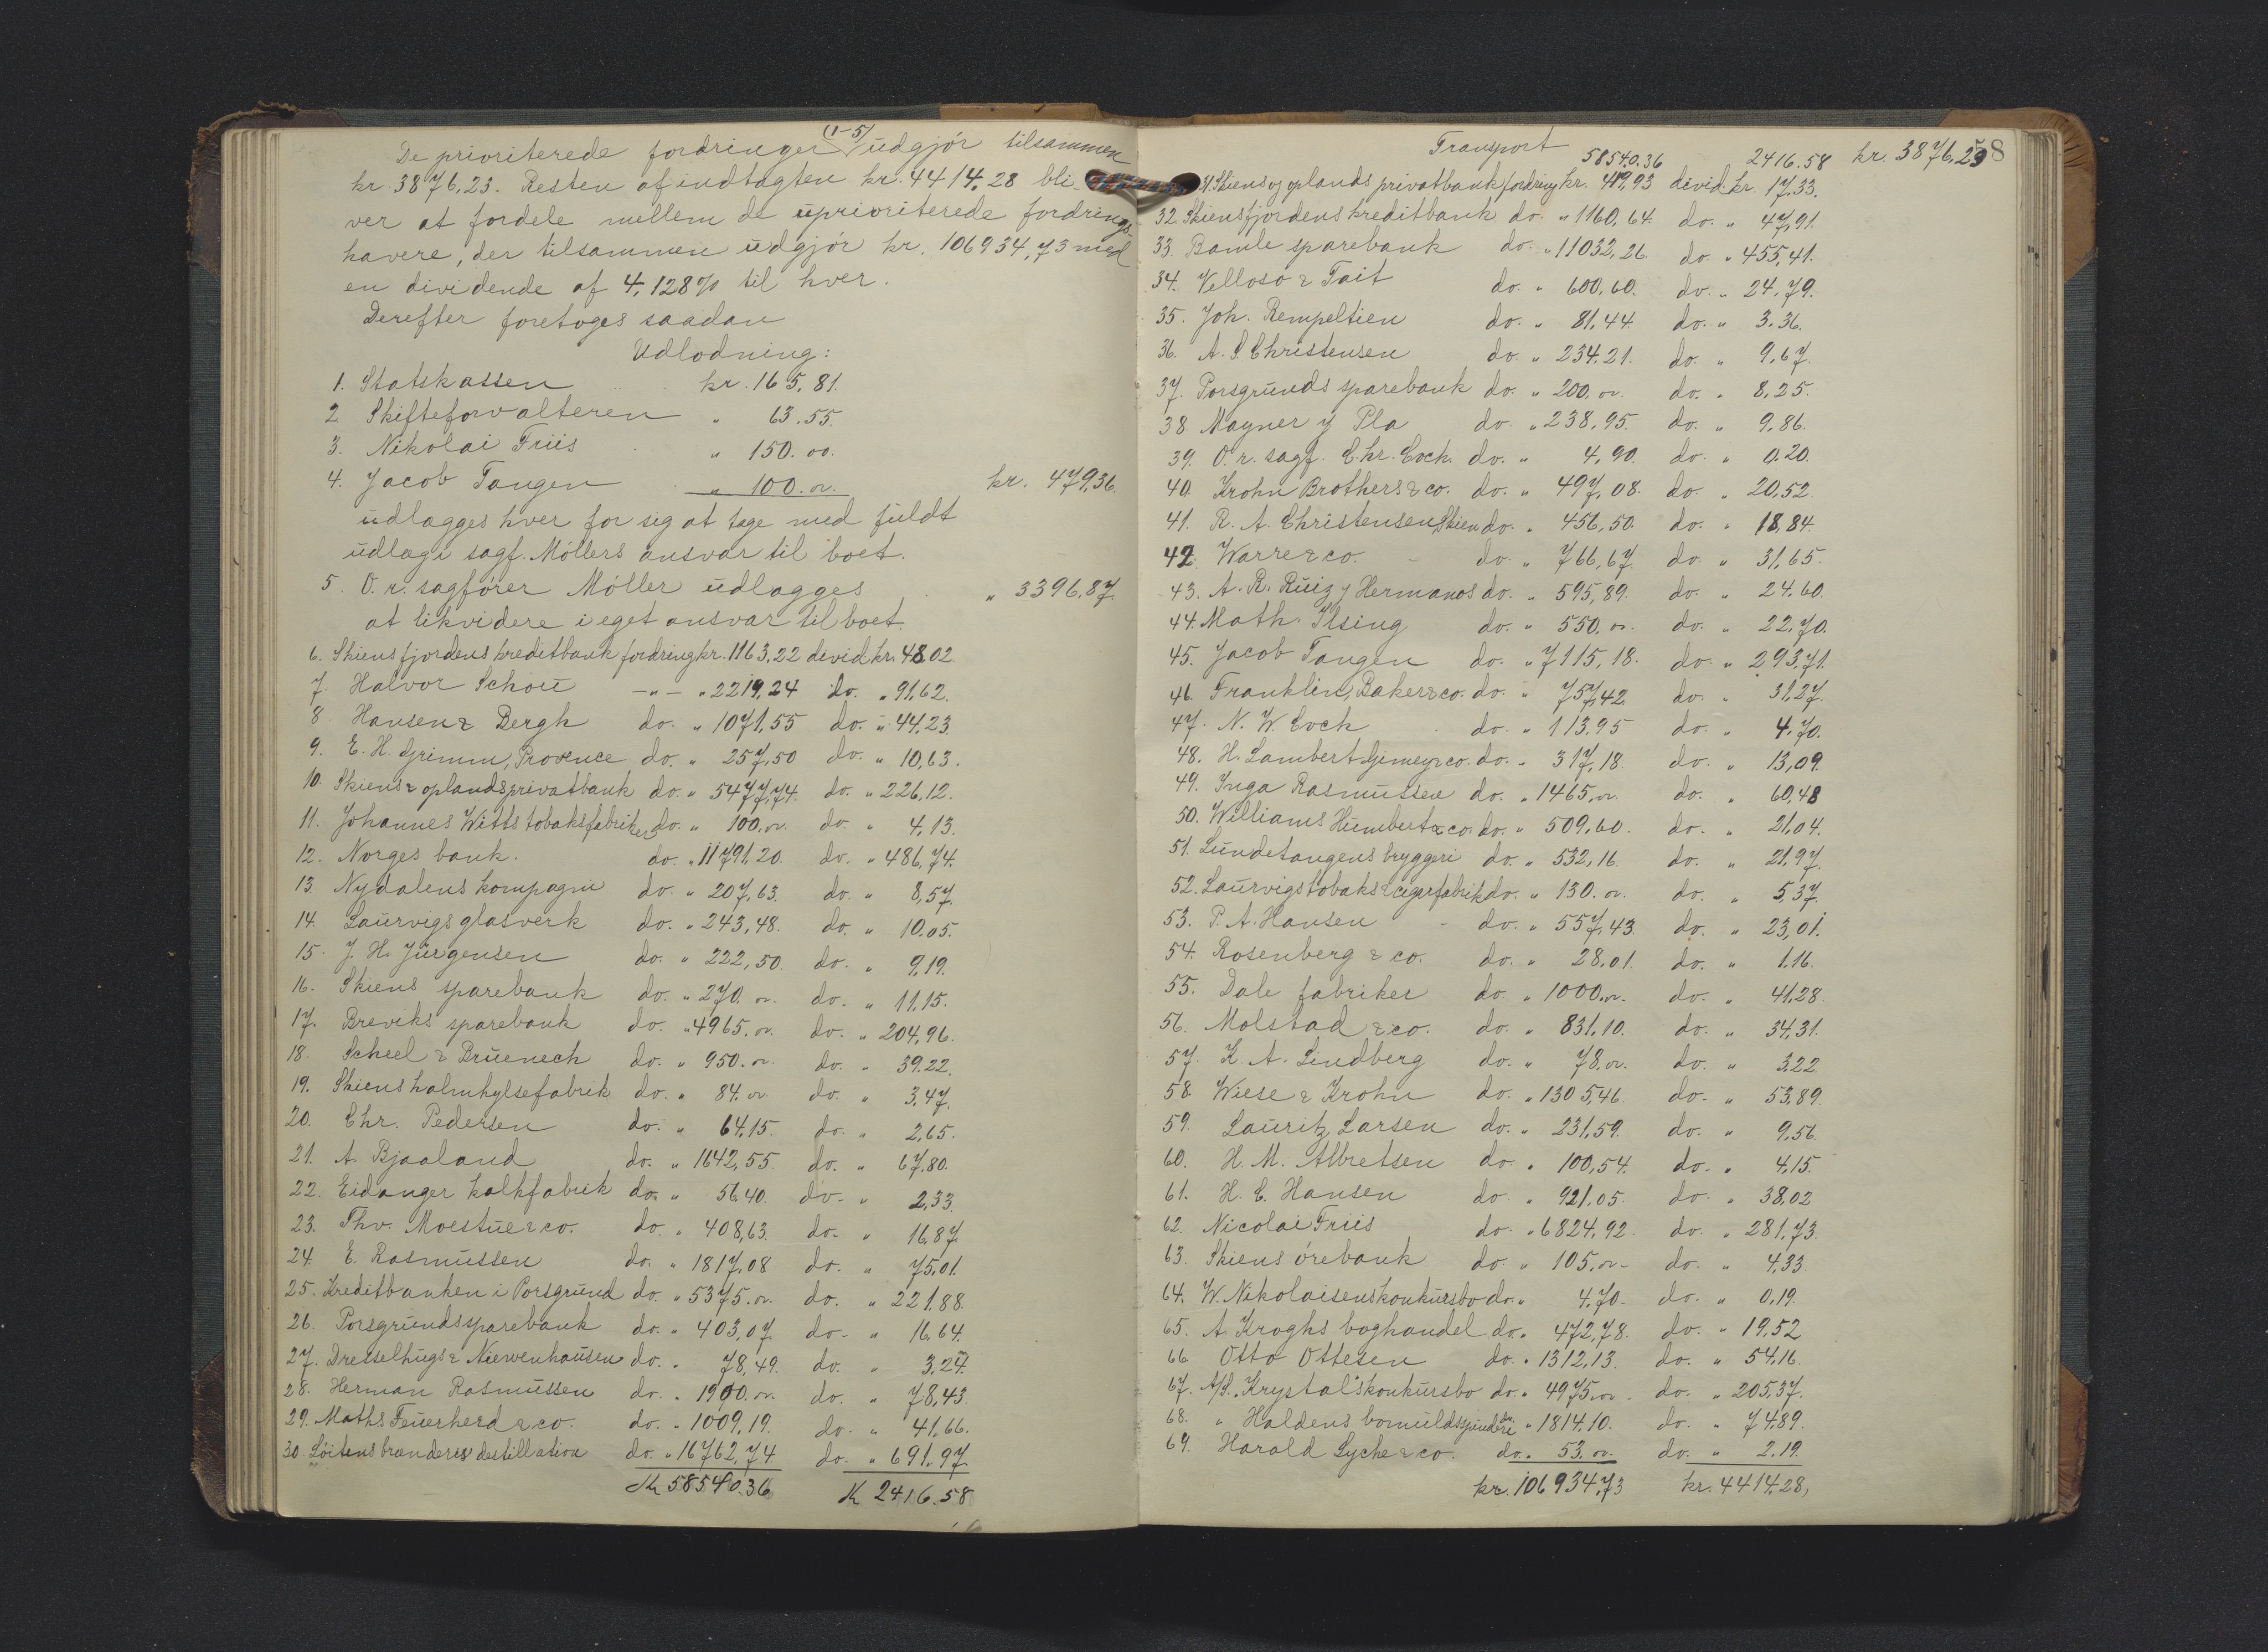 De prioriterede fordringer (1-5) udgjór tilsammen
kr. 3876,23. Resten af indtægten kr. 4414.28 bli-
ver at fordele mellem de uprioriterede fordrings-
havere, der tilsammen udgjór kr. 106934,73 med
en dividende af 4,128% til hver.
Derefter foretoges saadan
Udlodning:
1. Statskassen kr. 165,81.
2 Skifteforvalteren " 63.55.
3. Nikolai Friis " 150.oo.
4. Jacob Tangen " 100.oo. kr. 479,36.
udlægges hver for sig at tage med fuldt
udlæg i sagf. Móllers ansvar til boet.
5. O. r. sagfórer Móller udlægges " 3396,87.
at likvidere i eget ansvar til boet.
6. Skiensfjordens kreditbank fordring kr. 1163,22 devid. kr. 48.02
7. Halvor Schou —"— " 2219,24 do. " 91,62.
8. Hansen & Bergh do. " 1071,55 do. " 44,23.
9. E. H. Grimm, Provence do. " 257,50 do. " 10,63.
10. Skiens & oplands privatbank do. " 5477,74. do. " 226,12.
11. Johannes Witts tobaksfabriker do. " 100.oo. do. " 4,13.
12. Norges bank. do. " 11791.20. do. " 486,74.
13. Nydalens kompagni do. " 207,63. do. " 8,57.
14. Laurvigs glasverk do. " 243,48. do. " 10.05.
15. J. H. Jürgensen do. " 222,50. do. " 9,19.
16. Skiens sparebank do. " 270. oo. do. " 11,15.
17. Breviks sparebank do. " 4965.oo. do. " 204,96.
18. Scheel & Bruenech do. " 950.oo. do. " 39.22.
19. Skiens halmhylsefabrik do. " 84.oo do. " 3,47.
20. Chr. Pedersen do. " 64,15. do. " 2,65.
21. A. Bjaaland do. " 1642,55. do. " 67,80.
22. Eidanger kalkfabrik do. " 56.40. do. " 2,33.
23. Thv. Moestue & co. do. " 408,63. do. " 16,87.
24. E. Rasmussen do. " 1817,08 do. " 75,01.
25. Kreditbanken i Porsgrund do. " 5375.oo. do. " 221.88.
26. Porsgrunds sparebank do. " 403,07. do. " 16,64.
27. Dresselhuys & Niewenhausen do. " 78,49. do. " 3,24.
28. Herman Rasmussen do. " 1900.oo. do. " 78,43.
29. Maths Feuerherd & co. do. " 1009,19. do. " 41,66.
30. Lóitens brænderis destillation do. " 16762,74 do. " 691.97
Kr 58540.36 Kr 2416.58
Transport 58540.36 2416.58 kr. 3876,23
58
31. Skiens og oplands privatbank fordring kr. 419,93 divid. kr. 17,33.
32. Skiensfjordens kreditbank do. " 1160,64. do. " 47,91.
33. Bamle sparebank do. " 11032,26. do. " 455,41.
34. Velloso & Tait do. " 600,60. do. " 24,79.
35. Joh. Rempeltien do. " 81,44. do. " 3.36.
36. A. S. Christensen do. " 234,21. do. " 9,67.
37. Porsgrunds sparebank do. " 200.oo. do. " 8,25.
38. Mayner y Pla do. " 238,95. do. " 9,86.
39. O. r. sagf. Chr. Cock. do. " 4,90. do. " 0.20.
40. Krohn Brothers & co. do. " 497,08. do. " 20,52.
41. R. A. Christensen Skien do. " 456,50. do. " 18,84.
42. Warre & co. do. " 766,67. do. " 31,65.
43. A. R. Ruiz y Hermanos do. " 595,89. do. " 24,60.
44. Math. Ilsing do. " 550.oo. do. " 22,70.
45. Jacob Tangen do. " 7115,18. do. " 293,71.
46. Franklin, Baker & co. do. " 757,42. do. " 31,27.
47. N. W. Cock do. " 113,95 do. " 4,70.
48. H. Lambert Gjimey & co. do. " 317,18. do. " 13,09.
49. Inga Rasmussen do. " 1465,oo. do. " 60,48
50. Williams Humbert & co. do. " 509,60. do. " 21,04.
51. Lundetangens bryggeri do. " 532,16. do. " 21.97.
52. Laurvigs tobaks & cigarfabrik do. " 130.oo. do. " 5,37.
53. P. A. Hansen do. " 557,43. do. " 23,01.
54. Rosenberg & co. do. " 28.01. do. " 1.16.
55. Dale fabriker do. " 1000.oo. do. " 41,28.
56. Molstad & co. do. " 831,10. do. " 34,31.
57. K. A. Lindberg do. " 78.oo. do. " 3.22.
58. Wiese & Krohn do. " 1305,46. do. " 53,89.
59. Lauritz Larsen do. " 231,59. do. " 9,56.
60. H. M. Albretsen do. " 100,54. do. " 4,15.
61. H. C. Hansen do. " 921.05. do. " 38,02
62. Nicolai Friis do. " 6824,92. do. " 281,73.
63. Skiens órebank do. " 105,oo- do. " 4,33.
64. W. Nikolaisens konkursbo do. " 4,70- do. " 0,19.
65. A. Kroghs boghandel do. " 472,78. do. " 19,52
66. Otto Ottesen do. " 1312,13. do. " 54,16.
67. A/S. "Krystal"s konkursbo do. " 4975.oo. do. " 205,37.
68. " Haldens bomuldspinderi do. " 1814,10. do. " 74.89.
69. Harald Lyche & co. do. " 53.oo. do. " 2.19.
kr. 106934,73 kr. 4414.28,